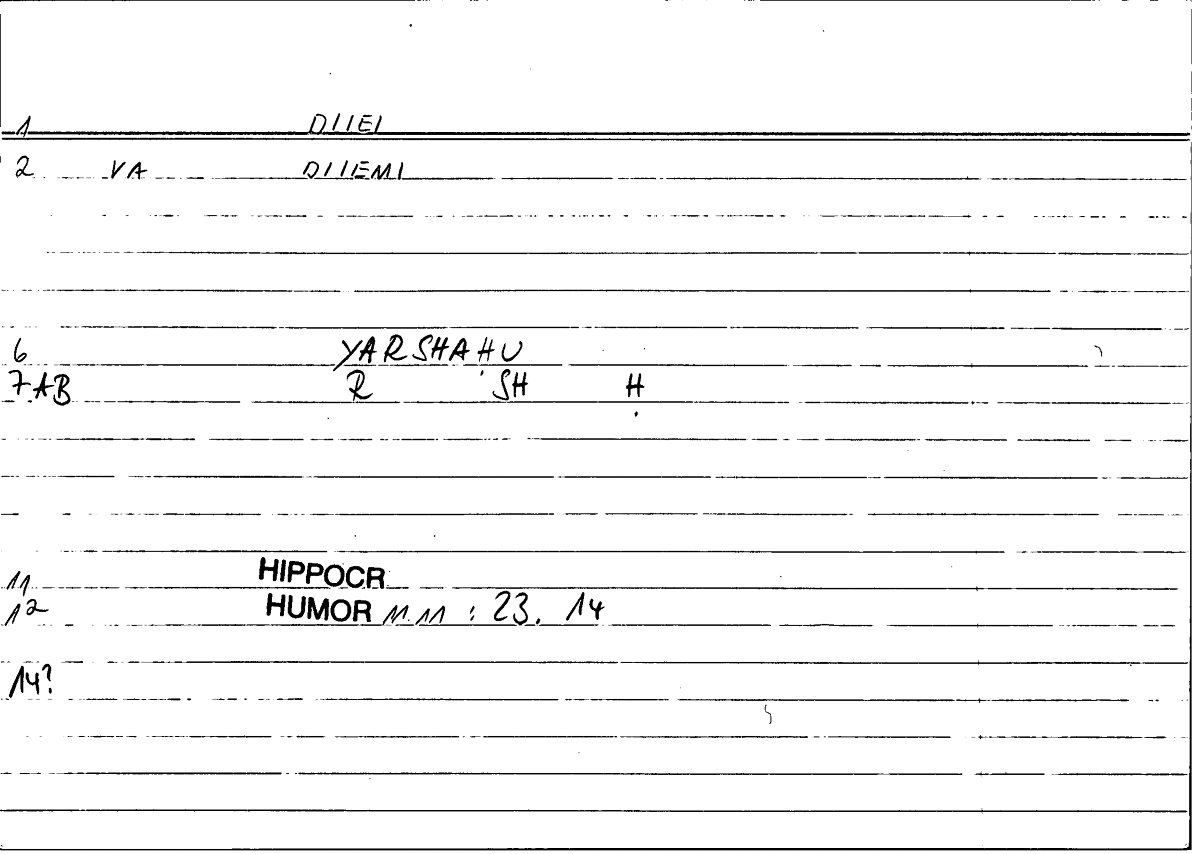 1 DIIEI
2 VA DIIEMI
6 YARSHAHU
7AB R SH H
11 HIPPOCR
12 HUMOR 11.11 : 23. 14
14?